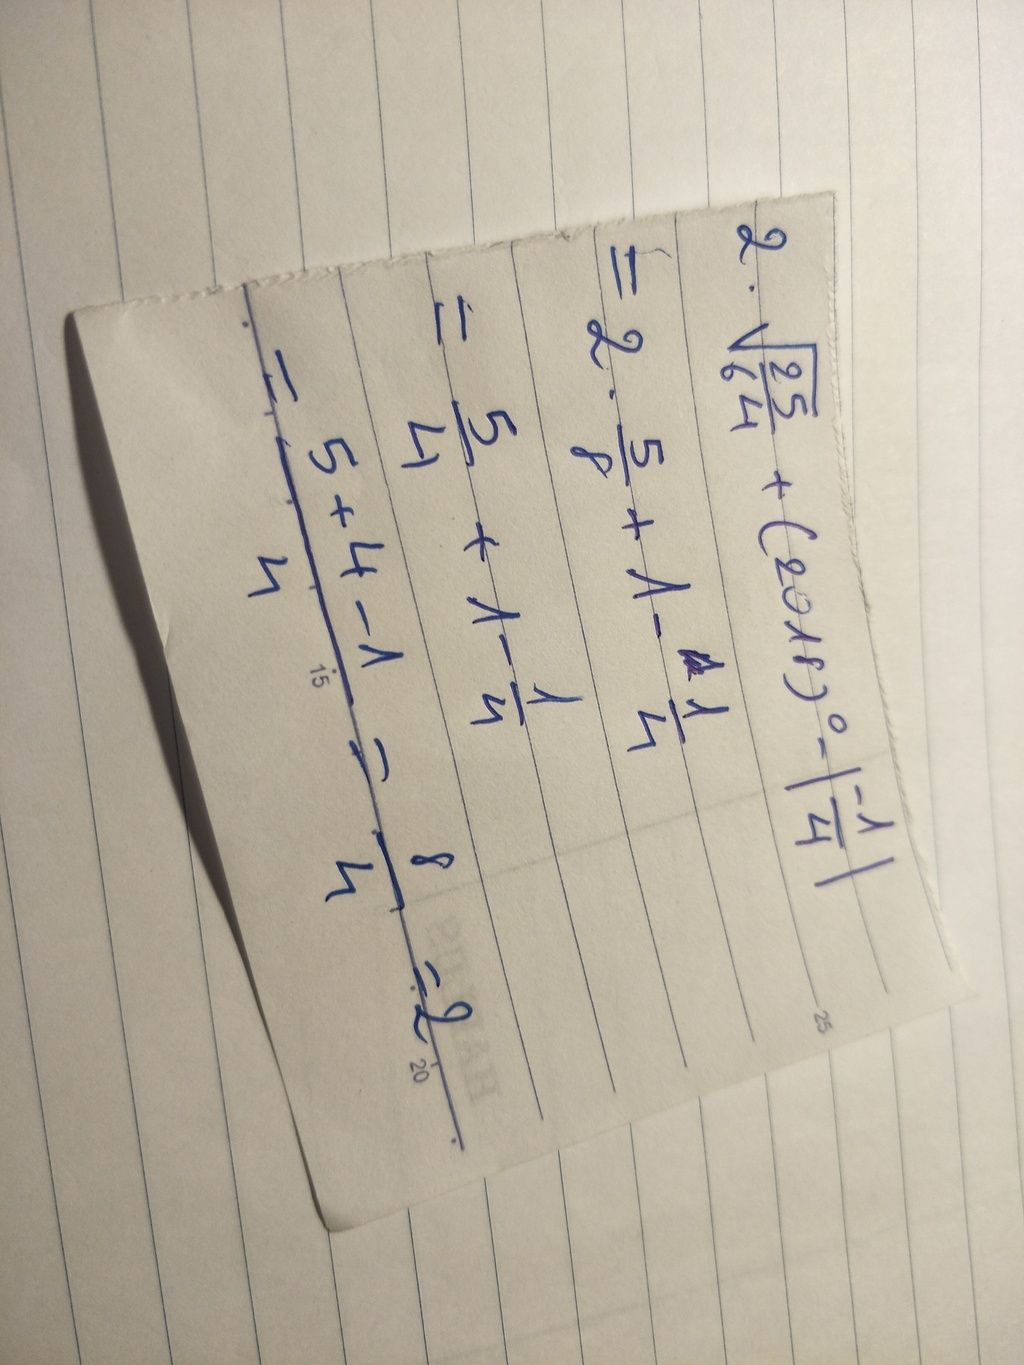 2 · √(25/64) + (2018)⁰ - |-1/4|
= 2 · 5/8 + 1 - 1/4
= 5/4 + 1 - 1/4
= (5 + 4 - 1)/4 = 8/4 = 2
15
20
25